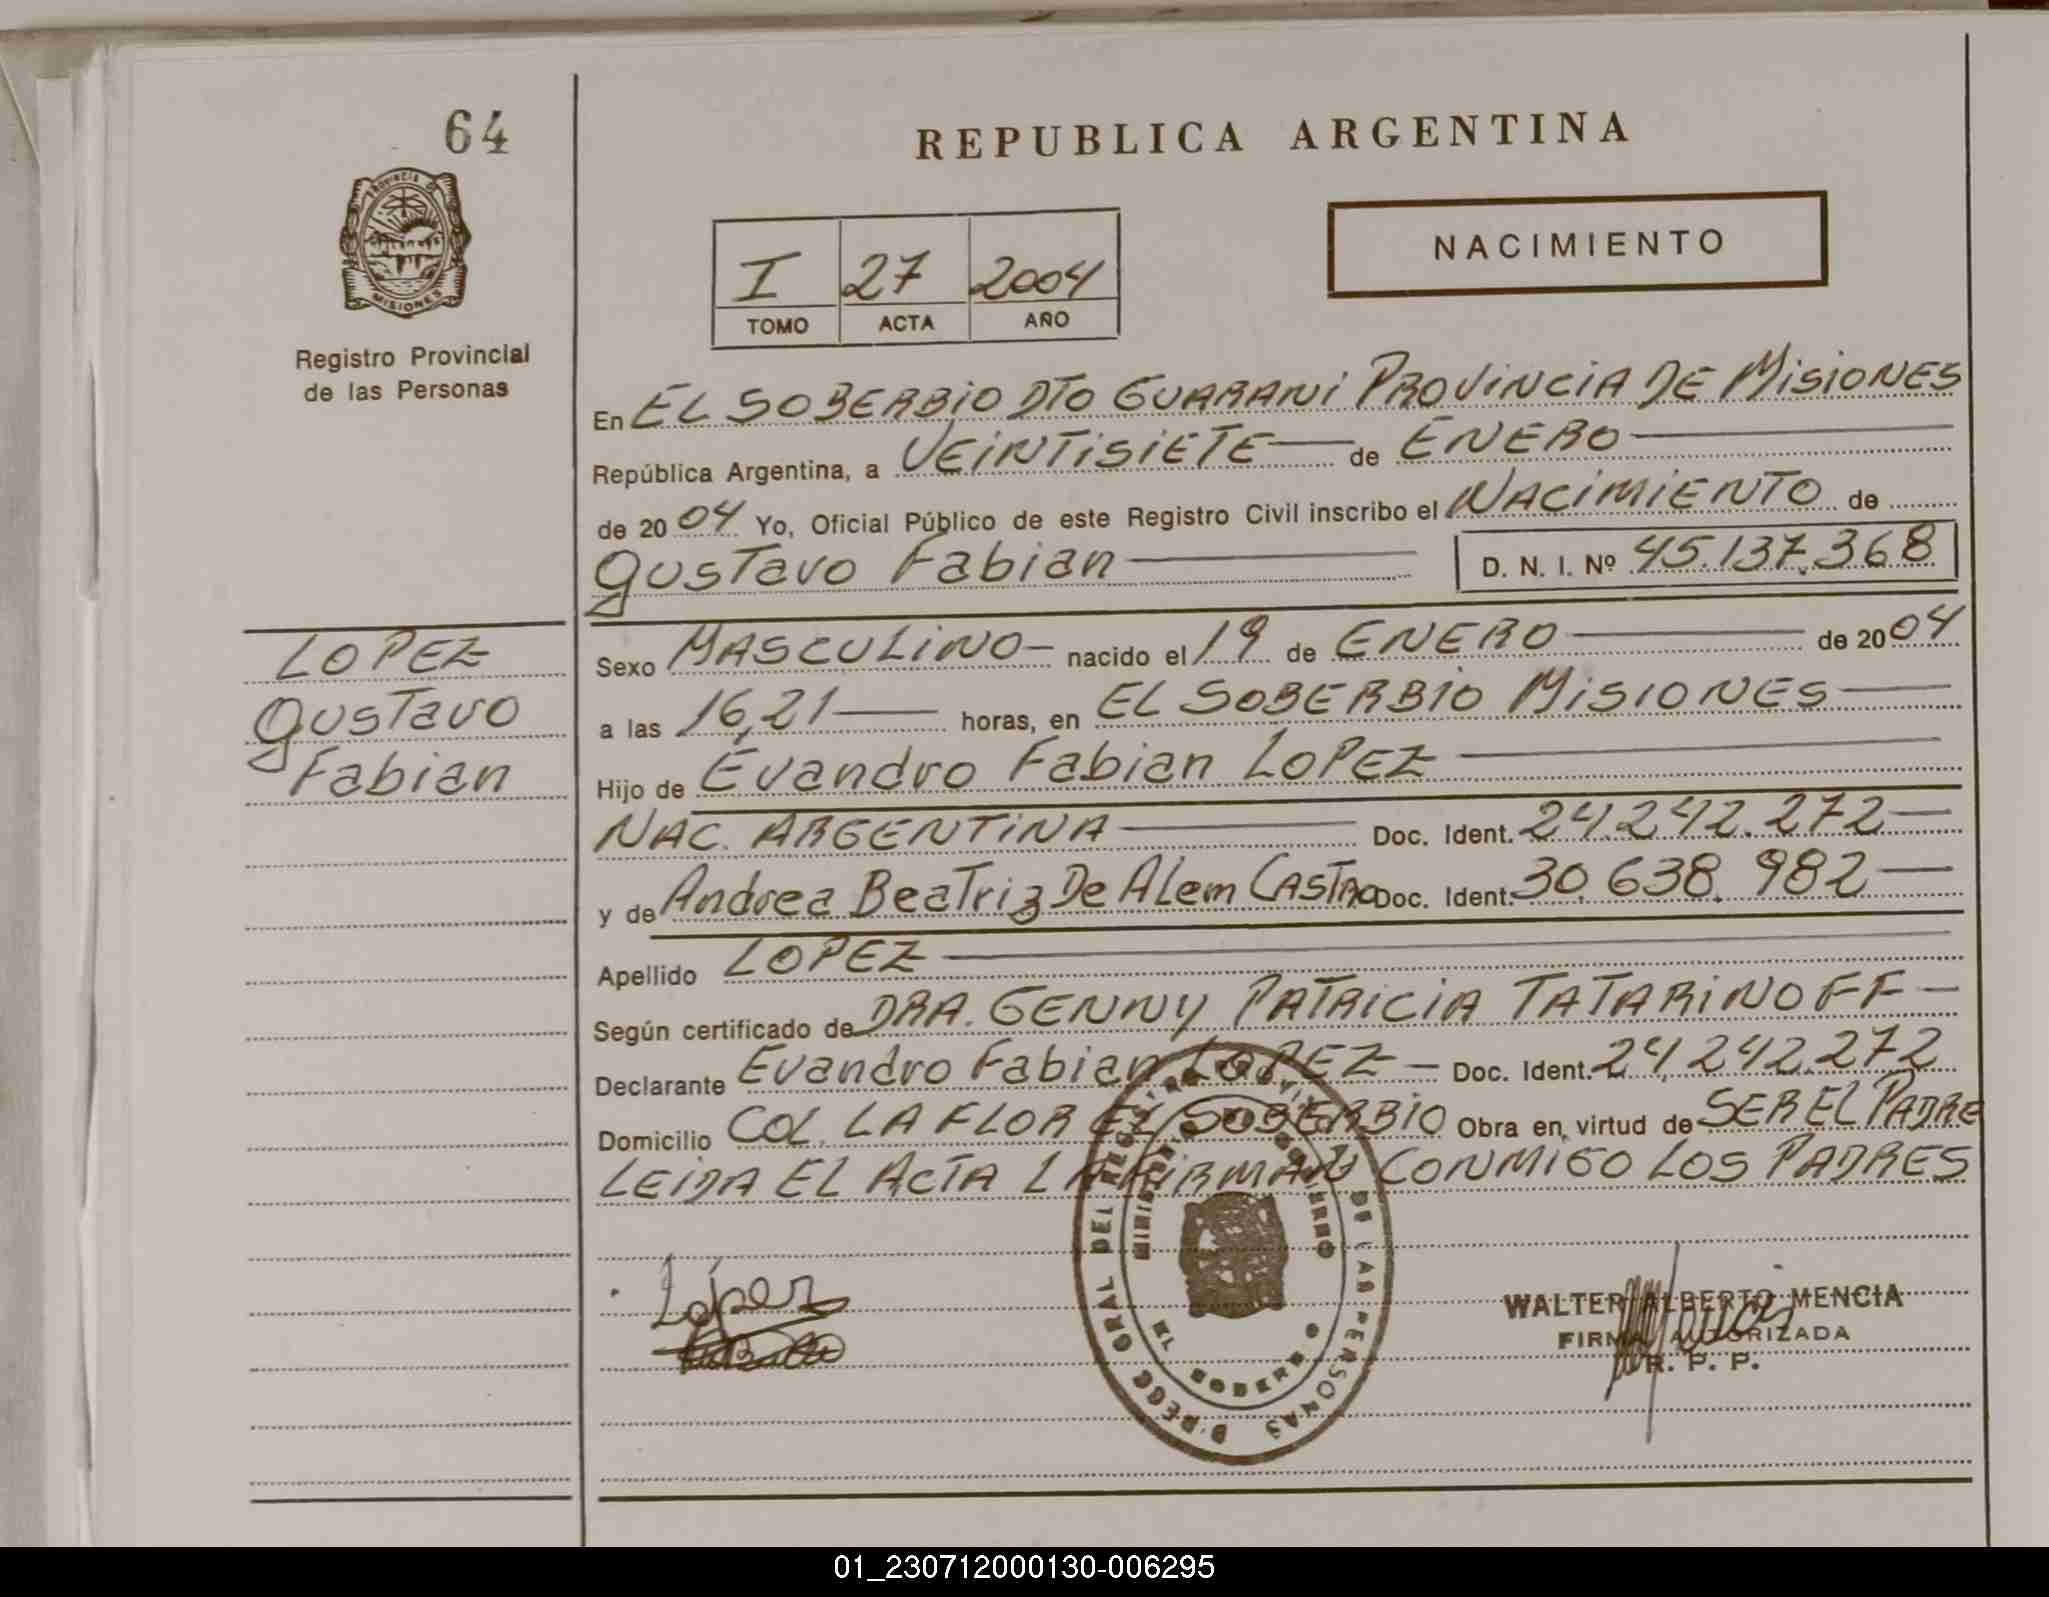 64
REPUBLICA ARGENTINA
PROVINCIA DE
MISIONES
Registro Provincial
de las Personas
I 27 2004
TOMO ACTA AÑO
NACIMIENTO
En EL SOBERBIO DTO GUARANI PROVINCIA DE MISIONES
República Argentina, a VEINTISIETE de ENERO
de 2004 Yo, Oficial Público de este Registro Civil inscribo el NACIMIENTO de
Gustavo Fabian D. N. I. Nº 45.137.368
LOPEZ
Gustavo
Fabian
Sexo MASCULINO nacido el 19 de ENERO de 2004
a las 16,21 horas, en EL SOBERBIO MISIONES
Hijo de Evandro Fabian LOPEZ
NAC. ARGENTINA Doc. Ident. 24.242.272
y de Andrea Beatriz De Alem CASTRO Doc. Ident. 30.638.982
Apellido LOPEZ
Según certificado de DRA. GENNY PATRICIA TATARINOFF
Declarante Evandro Fabian LOPEZ Doc. Ident. 24.242.272
Domicilio COL. LA FLOR EL SOBERBIO Obra en virtud de SER EL PADRE
LEIDA EL ACTA LA FIRMAN CONMIGO LOS PADRES
López
WALTER ALBERTO MENCIA
FIRMA AUTORIZADA
R. P. P.
GRAL DEL DE LAS PERSONAS
01_230712000130-006295